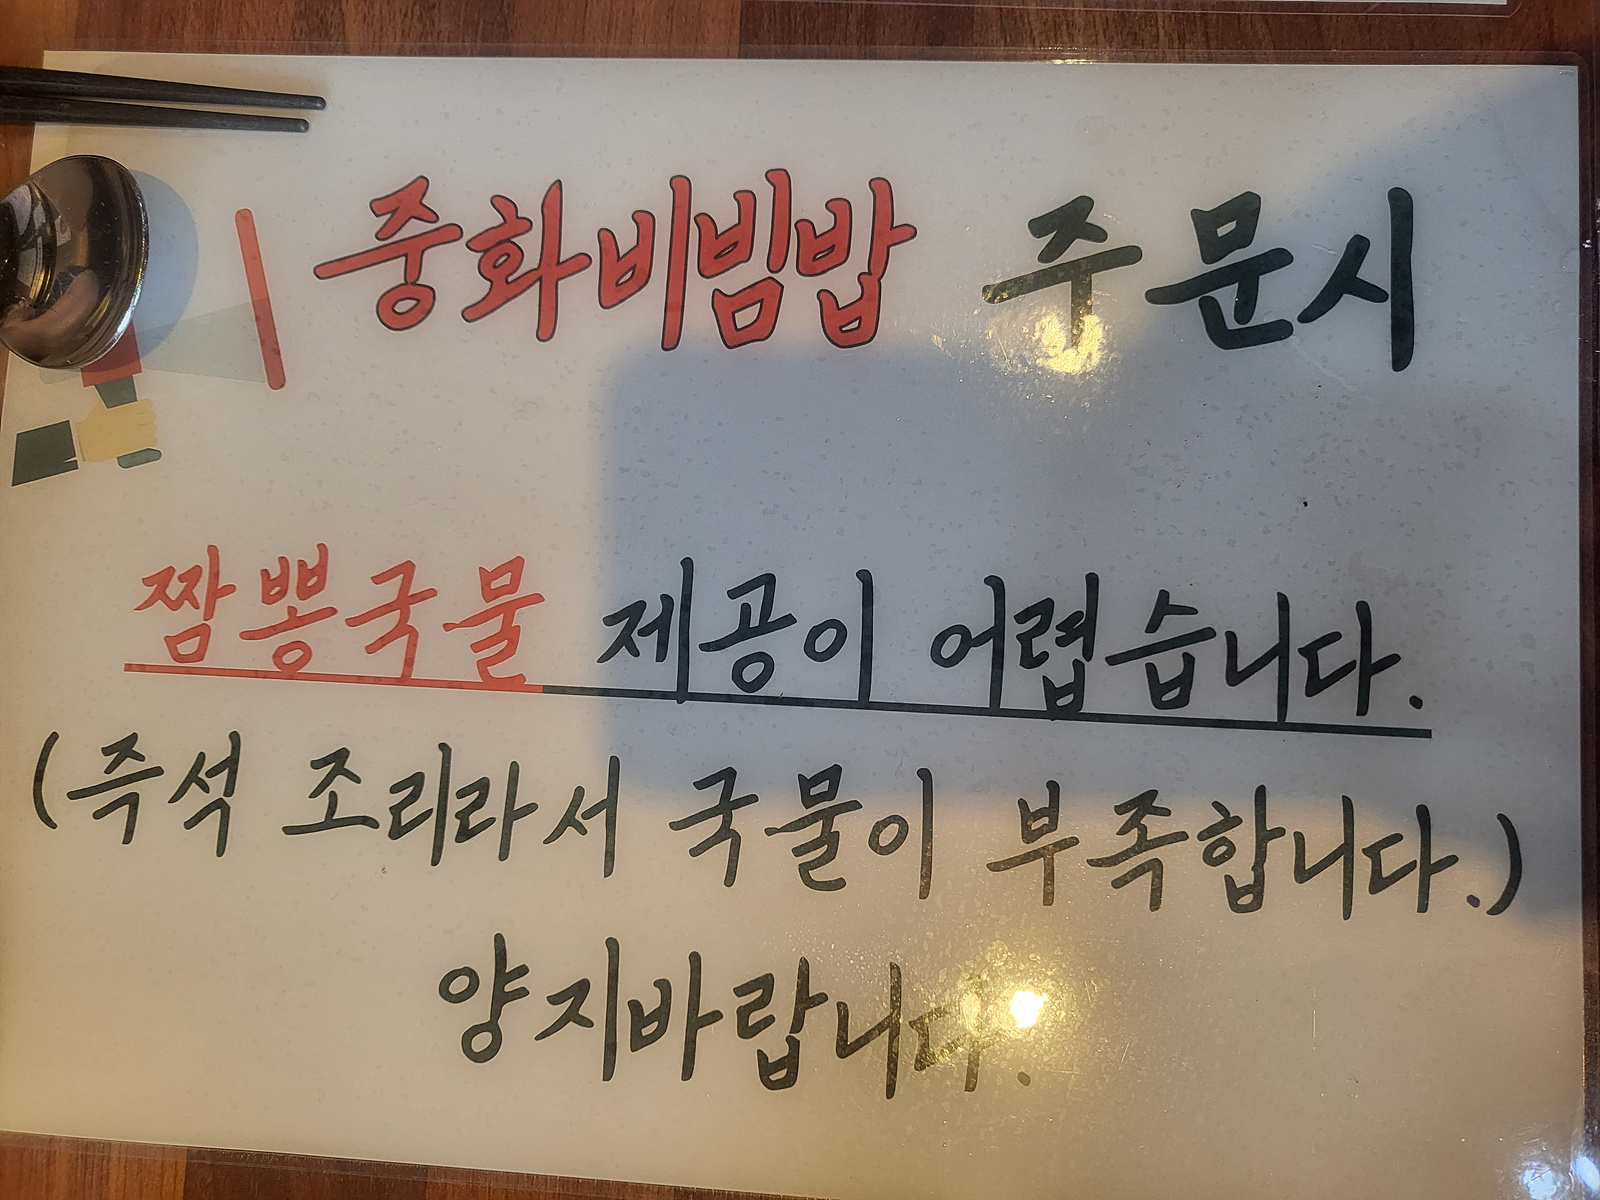 중화비빔밥 주문시
짬뽕국물 제공이 어렵습니다.
(즉석 조리라서 국물이 부족합니다.)
양지바랍니다.